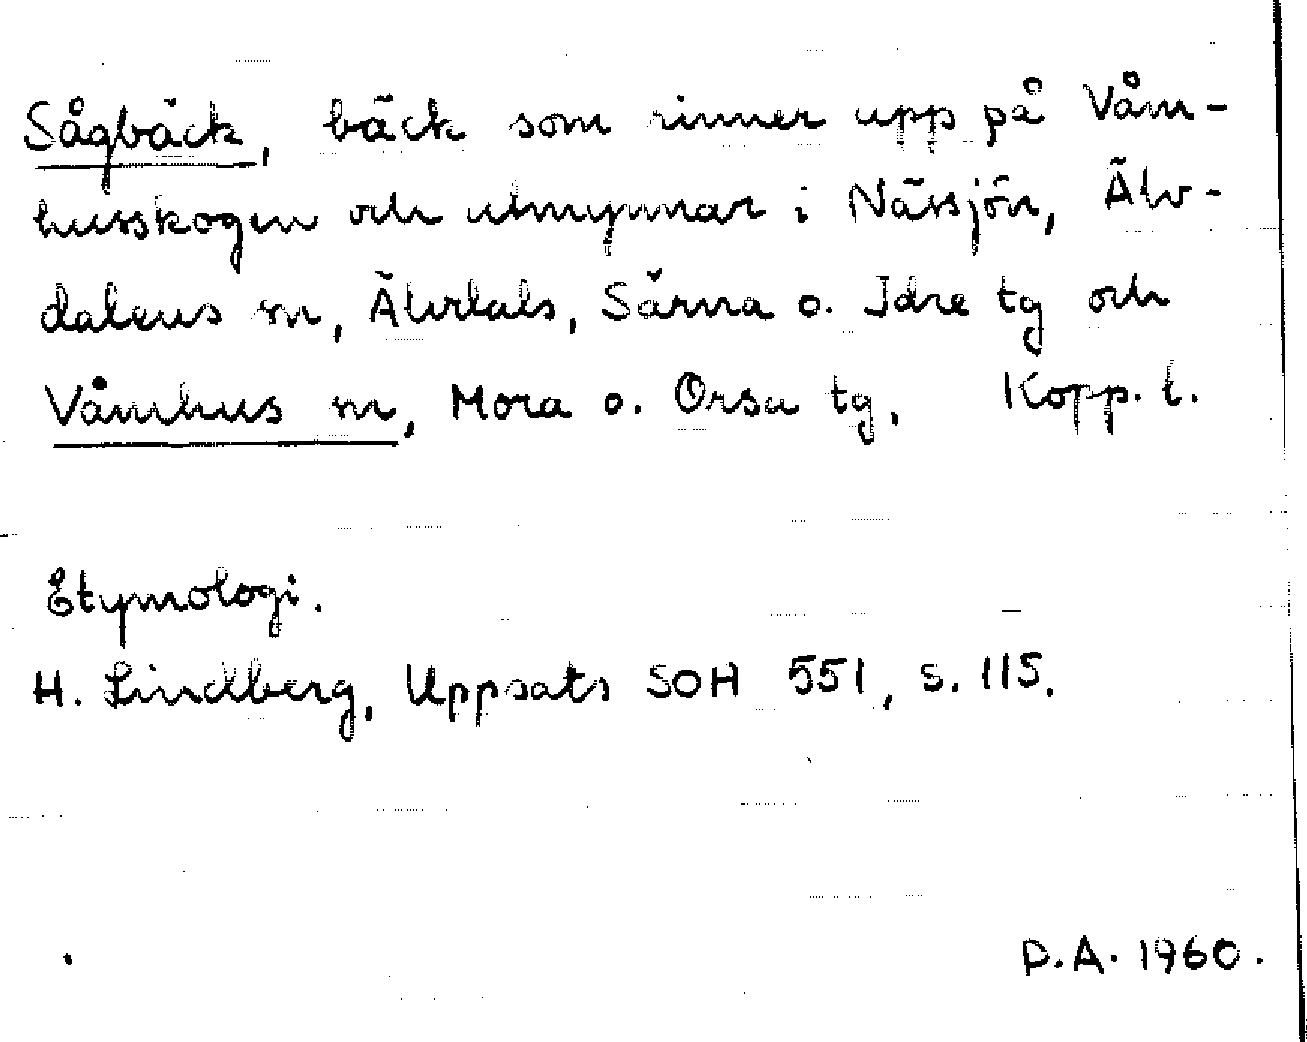 Sågbäck, bäck som rinner upp på Våm-
husskogen och utmynnar i Nässjön, Älv-
dalens sn, Älvdals, Särna o. Idre tg och
Våmhus sn, Mora o. Orsa tg. Kopp. l.
Etymologi.
H. Lindberg, Uppsats SOH 551, s. 115.
P.A. 1960.